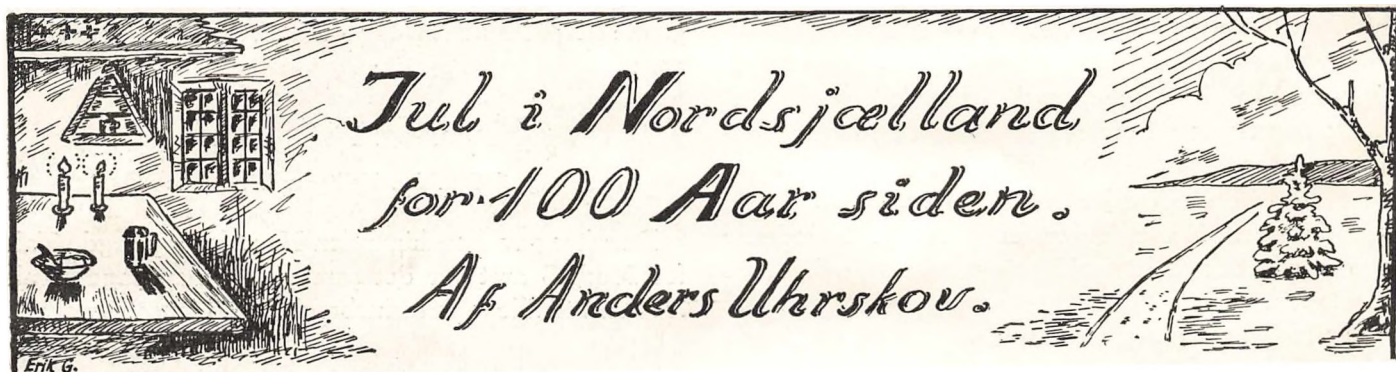 Jul i Nordsjælland
for 100 Aar siden.
Af Anders Uhrskov.
Erik G.